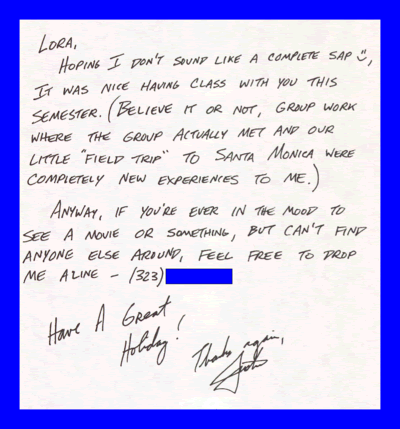 LORA,
HOPING I DON'T SOUND LIKE A COMPLETE SAP ☺,
IT WAS NICE HAVING CLASS WITH YOU THIS
SEMESTER. (BELIEVE IT OR NOT, GROUP WORK
WHERE THE GROUP ACTUALLY MET AND OUR
LITTLE "FIELD TRIP" TO SANTA MONICA WERE
COMPLETELY NEW EXPERIENCES TO ME.)
ANYWAY, IF YOU'RE EVER IN THE MOOD TO
SEE A MOVIE OR SOMETHING, BUT CAN'T FIND
ANYONE ELSE AROUND, FEEL FREE TO DROP
ME A LINE – (323)
Have A Great
Holiday!
Thanks again,